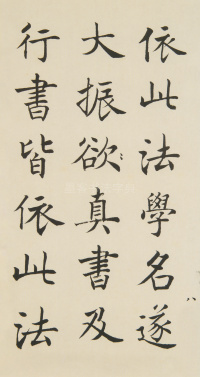 依此法學名遂
大振欲真書及
行書皆依此法